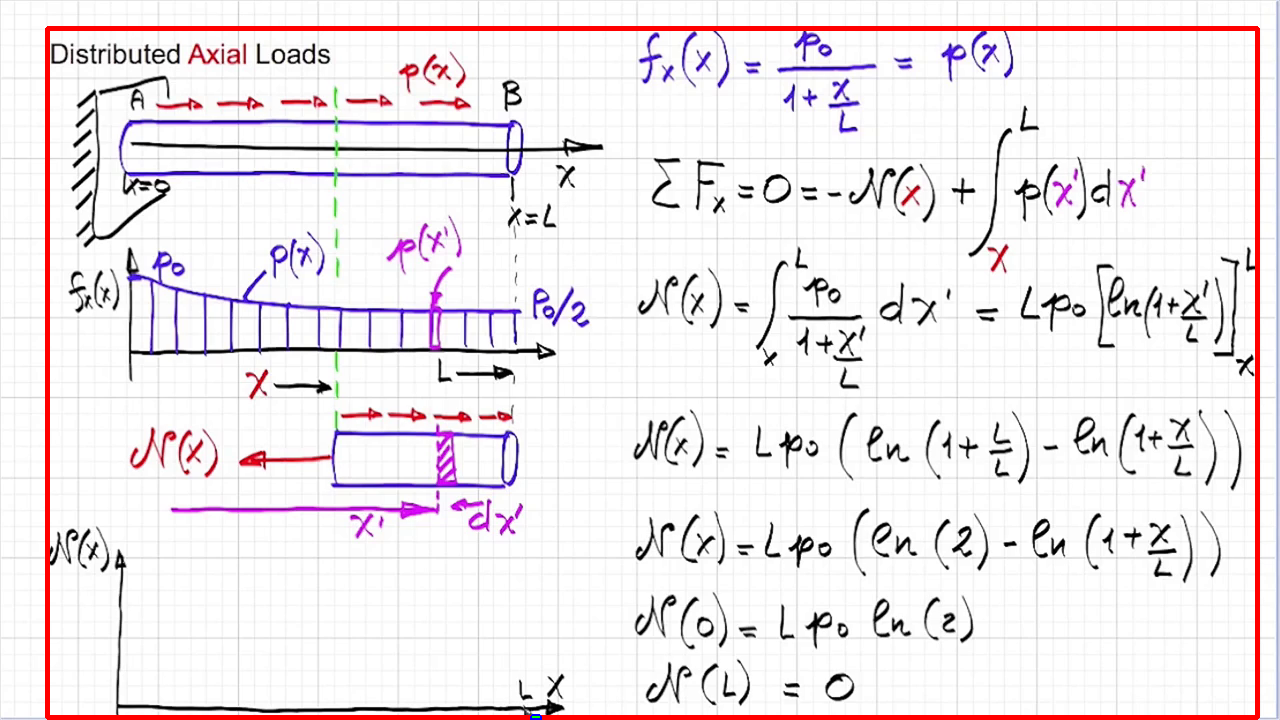 Distributed Axial Loads
p(x)
A
B
x=0
x
x=L
fx(x)
p0
p(x)
p(x')
P0/2
x
L
N(x)
x'
dx'
N(x)
L x
fx(x) = p0 / (1 + x/L) = p(x)
ΣFx = 0 = -N(x) + ∫_x^L p(x')dx'
N(x) = ∫_x^L p0 / (1 + x'/L) dx' = L p0 [ln(1 + x'/L)]_x^L
N(x) = L p0 (ln (1 + L/L) - ln (1 + x/L))
N(x) = L p0 (ln (2) - ln (1 + x/L))
N(0) = L p0 ln (2)
N(L) = 0